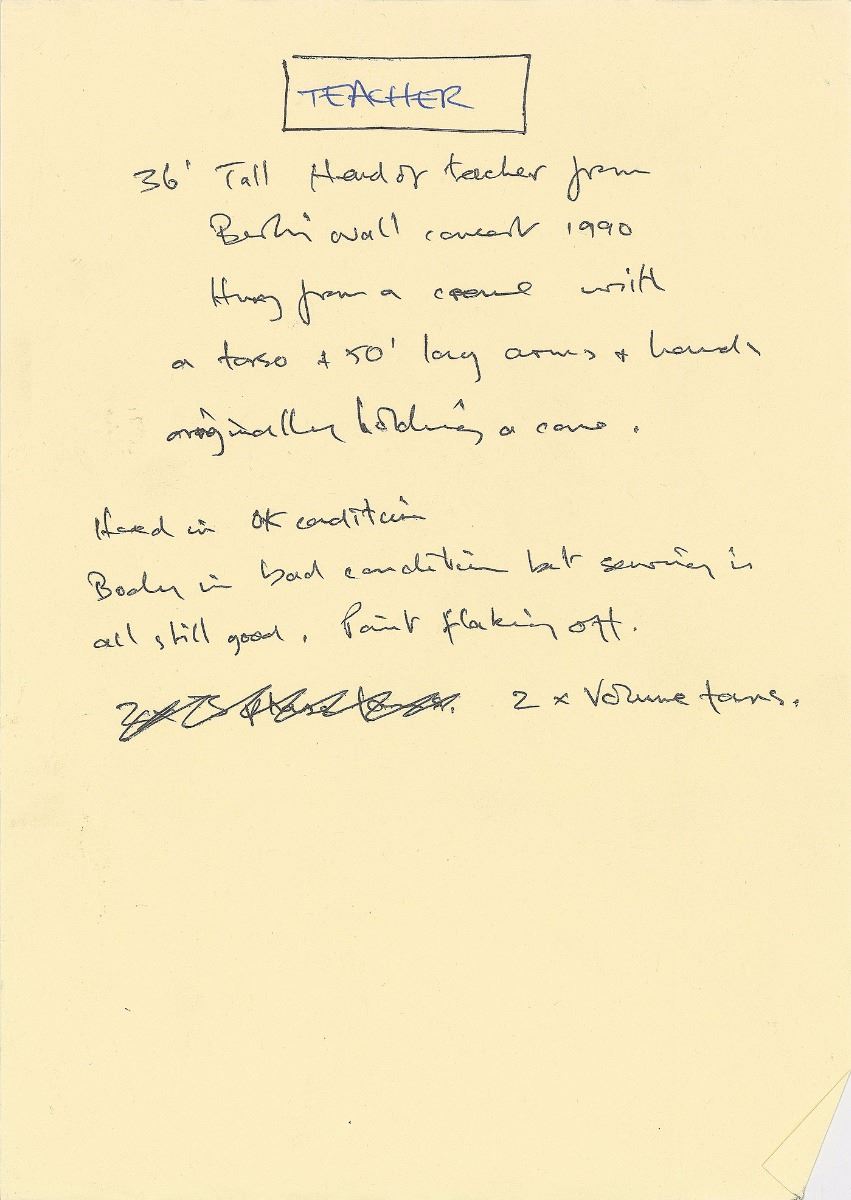 TEACHER
36' Tall Head of teacher from
Berlin wall concert 1990
Hung from a crane with
a torso + 50' long arms + hands
originally holding a cane.
Head in OK condition
Body in bad condition but sewing is
all still good. Paint flaking off.
2 x Volume fans.